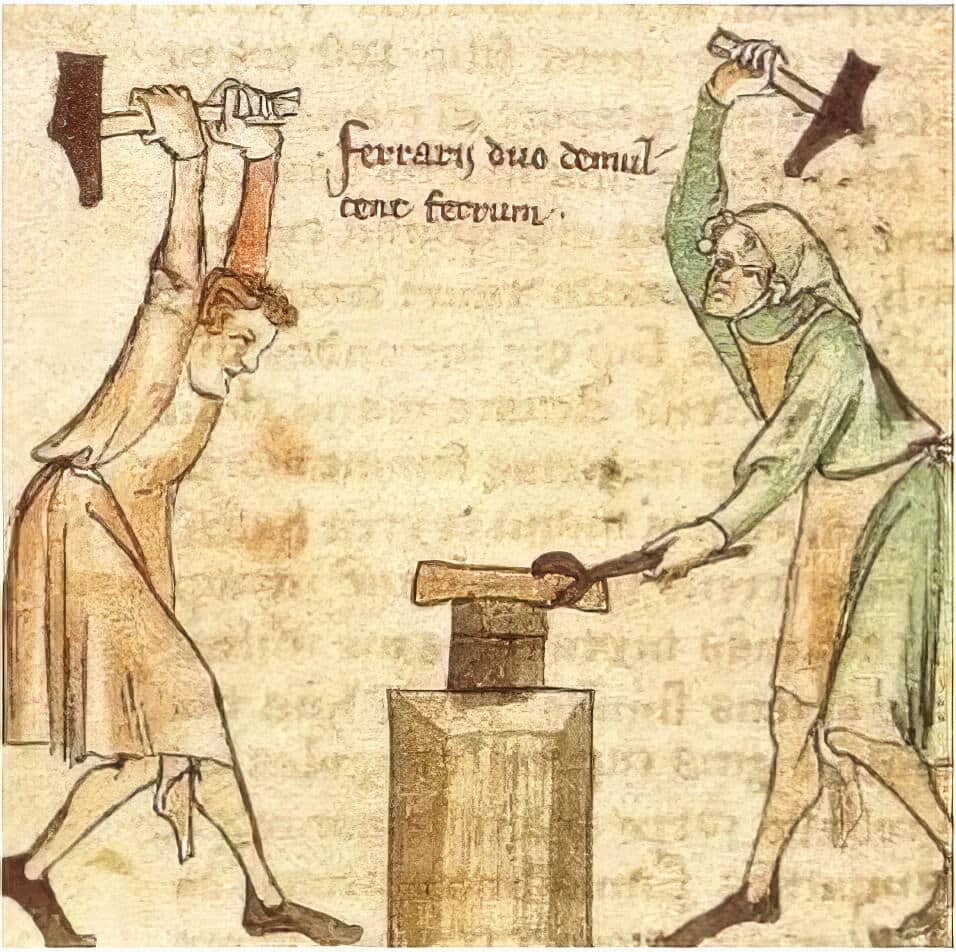 ferrarij duo demul-
cent ferrum.